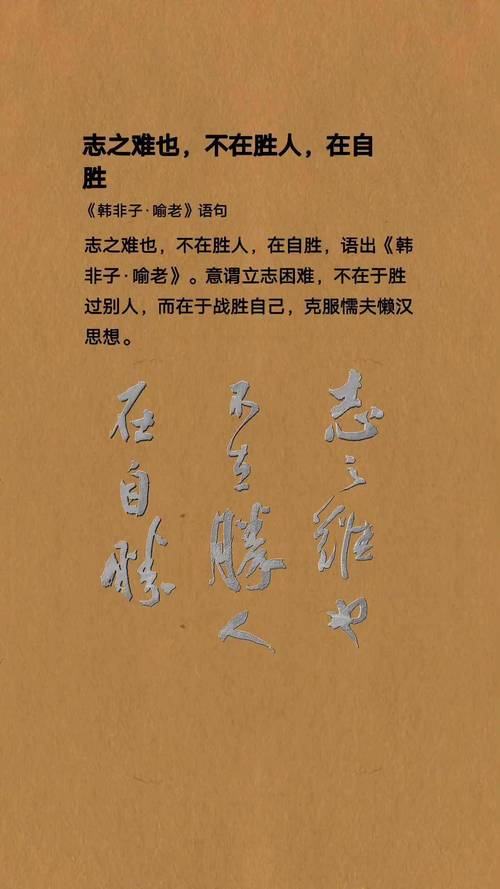 志之难也，不在胜人，在自
胜
《韩非子·喻老》语句
志之难也，不在胜人，在自胜，语出《韩
非子·喻老》。意谓立志困难，不在于胜
过别人，而在于战胜自己，克服懦夫懒汉
思想。
志之難也
不在勝人
在自勝